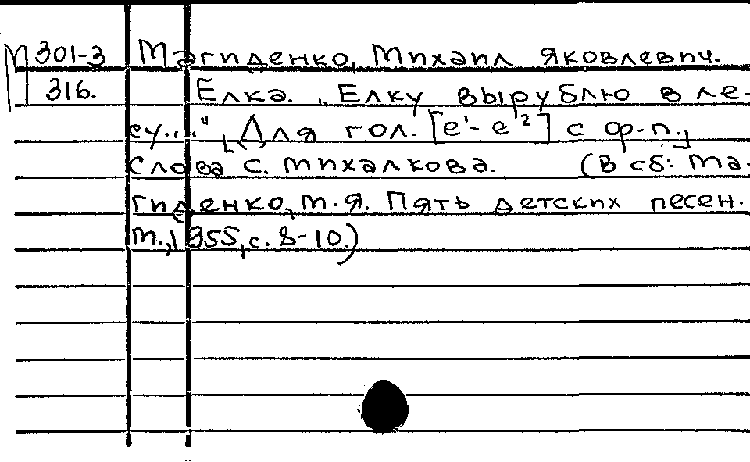 М 301-3 Магиденко, Михаил Яковлевич.
316. Елка. „Елку вырублю в ле-
су...." [Для гол. [e¹-e²] с ф-п.]
Слова С. Михалкова. (В сб: Ма-
гиденко, М.Я. Пять детских песен.
М., 1955, с. 8-10.)